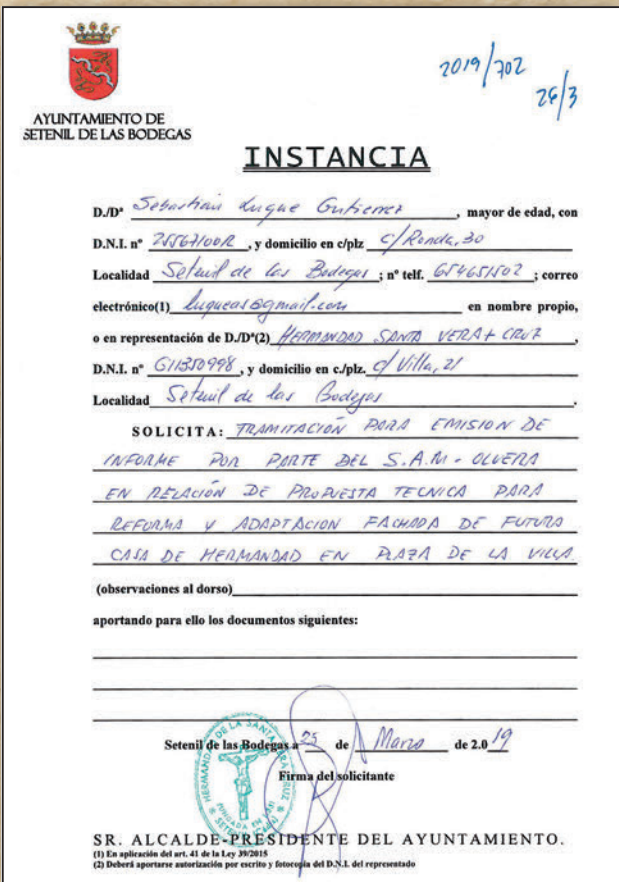 2019/702
26/3
AYUNTAMIENTO DE
SETENIL DE LAS BODEGAS
INSTANCIA
D./Dª Sebastian Luque Gutierrez, mayor de edad, con
D.N.I. nº 25567100R, y domicilio en c/plz c/Ronda, 30
Localidad Setenil de las Bodegas; nº telf. 654651502; correo
electrónico(1) luqueas@gmail.com en nombre propio,
o en representación de D./Dª(2) HERMANDAD SANTA VERA+CRUZ,
D.N.I. nº G11350998, y domicilio en c./plz. c/Villa, 21
Localidad Setenil de las Bodegas.
SOLICITA: TRAMITACIÓN PARA EMISION DE
INFORME POR PARTE DEL S.A.M - OLVERA
EN RELACIÓN DE PROPUESTA TECNICA PARA
REFORMA Y ADAPTACION FACHADA DE FUTURA
CASA DE HERMANDAD EN PLAZA DE LA VILLA.
(observaciones al dorso)
aportando para ello los documentos siguientes:
Setenil de las Bodegas a 25 de Marzo de 2.019
Firma del solicitante
HERMANDAD DE LA SANTA VERA CRUZ
FUNDADA EN
SETENIL
SR. ALCALDE-PRESIDENTE DEL AYUNTAMIENTO.
(1) En aplicación del art. 41 de la Ley 39/2015
(2) Deberá aportarse autorización por escrito y fotocopia del D.N.I. del representado